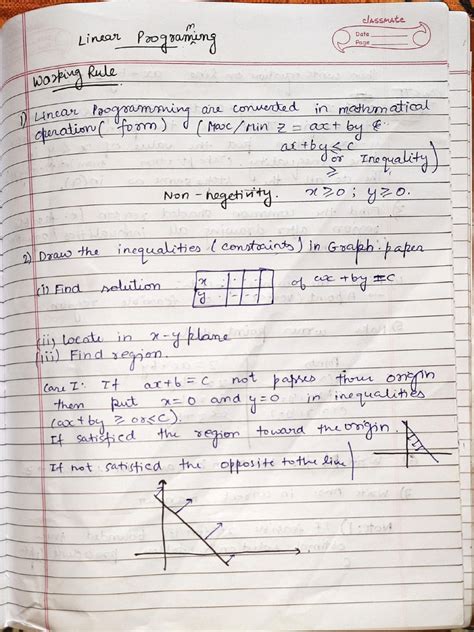 classmate
Date
Page
Linear Programing
m
Working Rule
1) Linear Programming are converted in mathmatical
operation ( form) (Max/Min z = ax + by &
ax + by ≤ c
or Inequality)
≥
Non - negetivity. x ≥ 0 ; y ≥ 0.
2) Draw the inequalities (constraints) in Graph paper
(i) Find solution x y of ax + by = c
(ii) Locate in x-y plane
(iii) Find region.
Case I: If ax + b = c not passes throw origin
then put x = 0 and y = 0 in inequalities
(ax + by ≥ or ≤ c).
If satisfied the region toward the origin
If not satisfied the opposite to the line